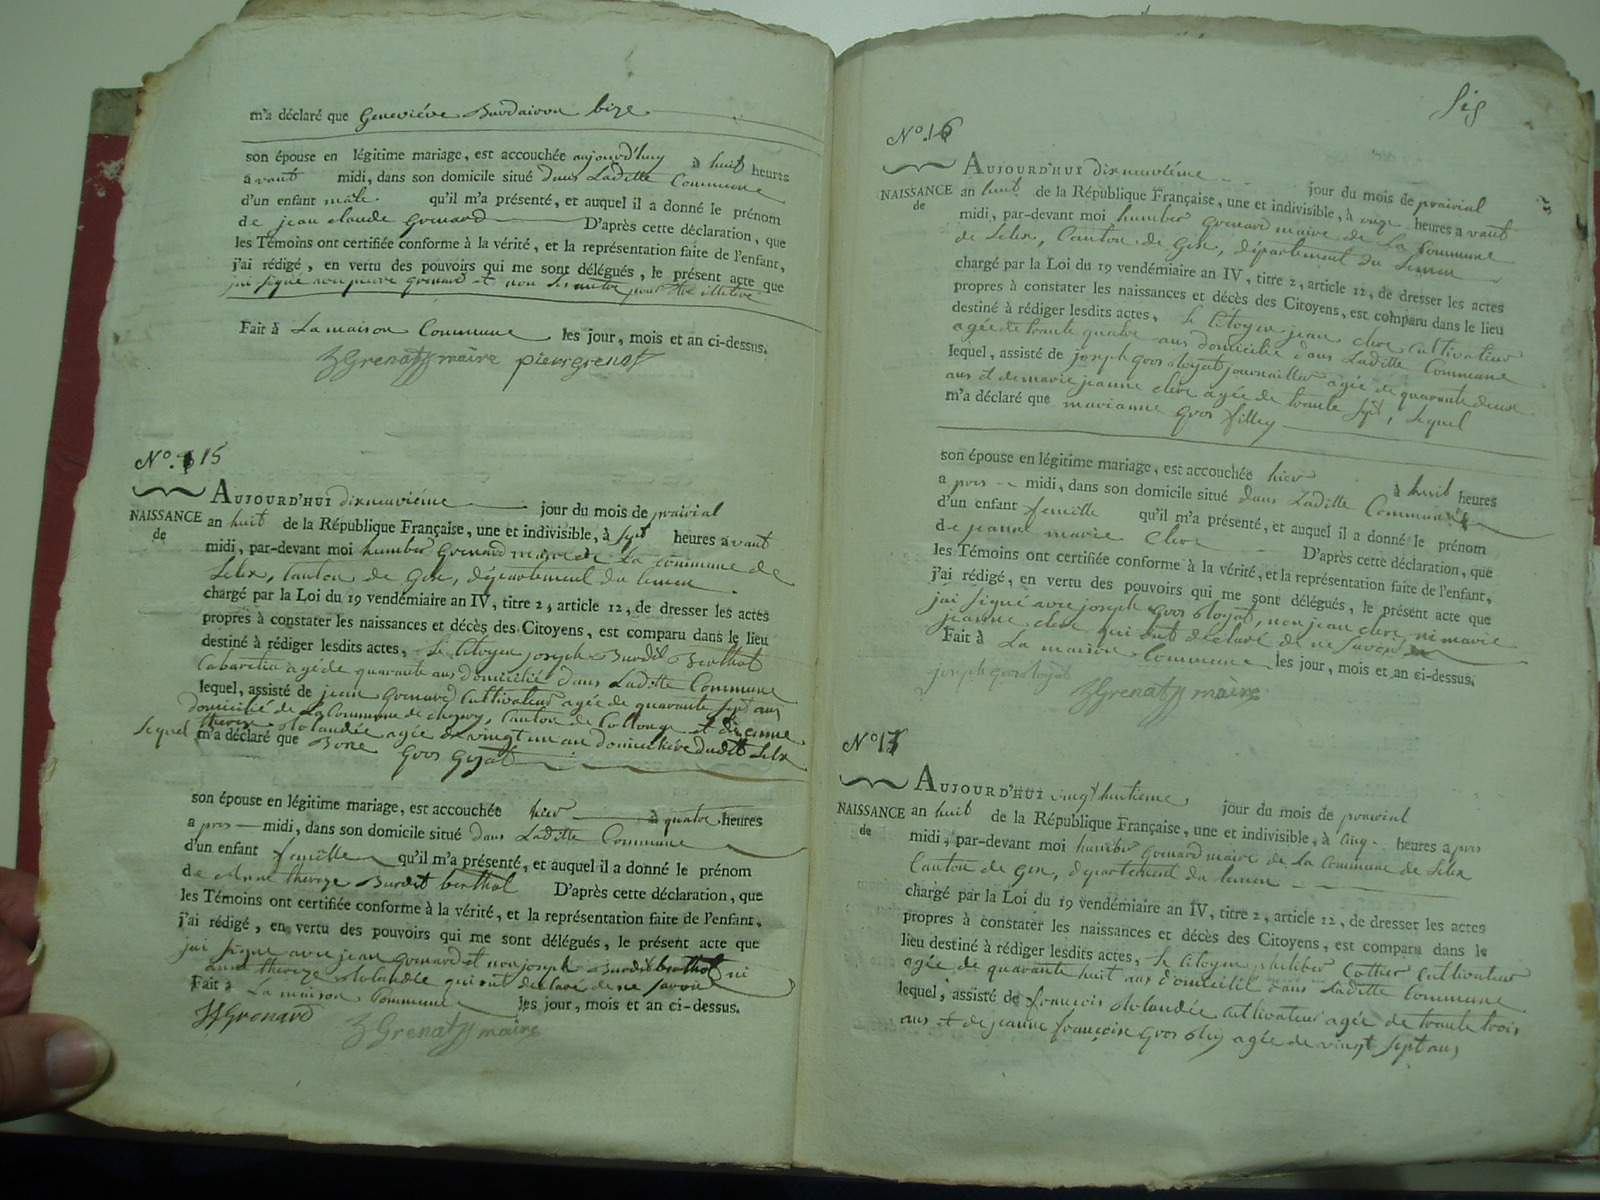 m'a déclaré que Geneviéve Burdairon bize
son épouse en légitime mariage, est accouchée aujourd'huy à huit heures
avant midi, dans son domicile situé dans Laditte Commune
d'un enfant mâle qu'il m'a présenté, et auquel il a donné le prénom
de jean claude Grenard D'après cette déclaration, que
les Témoins ont certifiée conforme à la vérité, et la représentation faite de l'enfant,
j'ai rédigé, en vertu des pouvoirs qui me sont délégués, le présent acte que
jai signé avec pierre Grenard et non
Fait à La maison Commune les jour, mois et an ci-dessus.
Grenat maire pierre grenat
N.º 15
AUJOURD'HUI dixneuviéme jour du mois de prairial
NAISSANCE an huit de la République Française, une et indivisible, à sept heures avant
de
midi, par-devant moi humber Grenard maire de La commune de
Lelex, Canton de Gex, département du Leman
chargé par la Loi du 19 vendémiaire an IV, titre 2, article 12, de dresser les actes
propres à constater les naissances et décès des Citoyens, est comparu dans le lieu
destiné à rédiger lesdits actes, Le Citoyen joseph Burdet Berthot
Cabaretier agé de quarante ans domicilié dans Laditte Commune
lequel, assisté de jean Grenard Cultivateur agée de quarante sept ans
domicilié de La Commune de chezery, Canton de Collonge et de anne
thereze blolandée agée de vingt un an domiciliée dudit Lelex
Lequel m'a déclaré que Gros
son épouse en légitime mariage, est accouchée hier à quatre heures
a pres midi, dans son domicile situé dans Laditte Commune
d'un enfant femelle qu'il m'a présenté, et auquel il a donné le prénom
de Anne thereze Burdet berthot D'après cette déclaration, que
les Témoins ont certifiée conforme à la vérité, et la représentation faite de l'enfant,
j'ai rédigé, en vertu des pouvoirs qui me sont délégués, le présent acte que
jai signé avec jean Grenard et non joseph Burdet berthot ni
anne thereze blolandée qui ont declaré de ne savoir
Fait à La maison Commune les jour, mois et an ci-dessus.
Grenard Grenat maire
Six
N.º 16
AUJOURD'HUI dixneuviéme jour du mois de prairial
NAISSANCE an huit de la République Française, une et indivisible, à onze heures avant
de
midi, par-devant moi humber Grenard maire de La Commune
de Lelex, Canton de Gex, département du Leman
chargé par la Loi du 19 vendémiaire an IV, titre 2, article 12, de dresser les actes
propres à constater les naissances et décès des Citoyens, est comparu dans le lieu
destiné à rédiger lesdits actes, Le Citoyen jean clerc Cultivateur
agée de trante quatre ans domicilié dans Laditte Commune
lequel, assisté de joseph Gros bloyat journaillier agée de quarante deux
ans et de marie jeanne clerc agée de trante sept, Lequel
m'a déclaré que marianne Gros filley
son épouse en légitime mariage, est accouchée hier à huit heures
a pres midi, dans son domicile situé dans Laditte Commune
d'un enfant femelle qu'il m'a présenté, et auquel il a donné le prénom
de jeanne marie Clerc D'après cette déclaration, que
les Témoins ont certifiée conforme à la vérité, et la représentation faite de l'enfant,
j'ai rédigé, en vertu des pouvoirs qui me sont délégués, le présent acte que
jai signé avec joseph Gros bloyat, non jean clerc, ni marie
jeanne clerc qui ont declaré de ne savoir
Fait à La maison Commune les jour, mois et an ci-dessus.
joseph gros bloyat Grenat maire
N.º 17
AUJOURD'HUI vingt huitieme jour du mois de prairial
NAISSANCE an huit de la République Française, une et indivisible, à cinq heures a pres
de
midi, par-devant moi humber Grenard maire de La Commune de Lelex
Canton de Gex, département du Leman
chargé par la Loi du 19 vendémiaire an IV, titre 2, article 12, de dresser les actes
propres à constater les naissances et décès des Citoyens, est comparu dans le
lieu destiné à rédiger lesdits actes, Le Citoyen philiber Cottier Cultivateur
agée de quarante huit ans domicilié dans Laditte Commune
lequel, assisté de françois blolandée Cultivateur agée de trante trois
ans et de jeanne françoise Gros agée de vingt sept ans